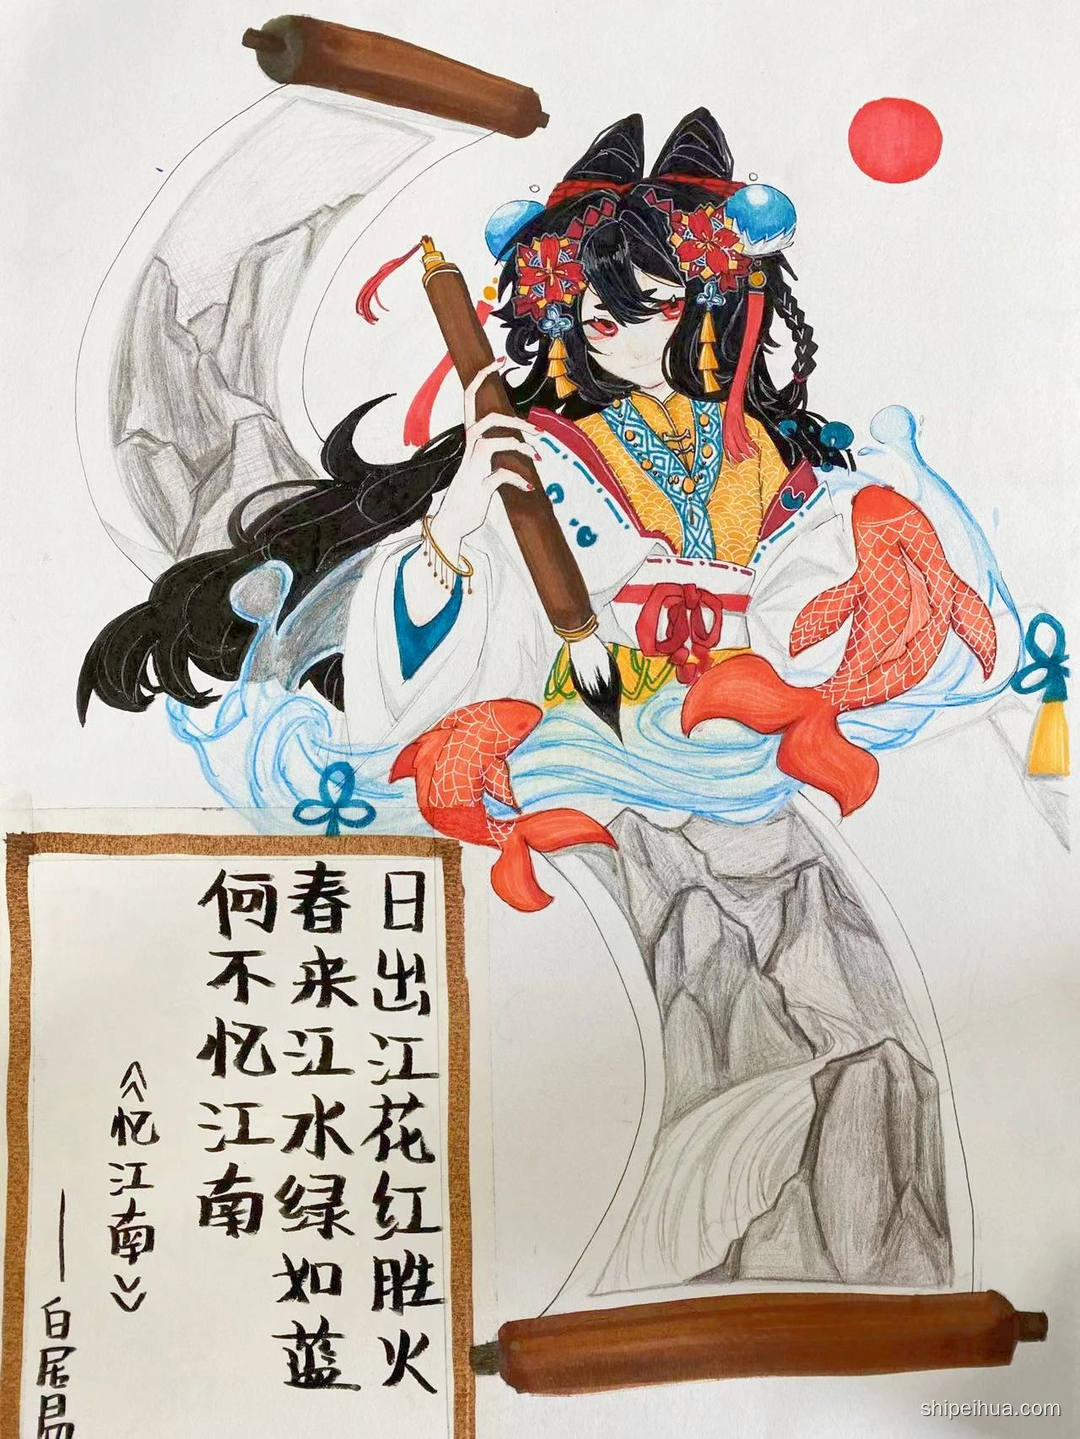 日出江花红胜火
春来江水绿如蓝
何不忆江南
《忆江南》
——白居易
shipeihua.com